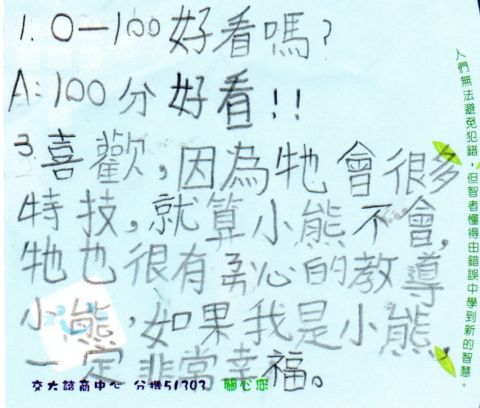 1. 0—100好看嗎?
A:100分好看!!
3.喜歡,因為牠會很多
特技,就算小熊不會,
牠也很有耐心的教導
小熊,如果我是小熊,
一定非常幸福。
交大諮商中心 分機51303 關心您
人們無法避免犯錯,但智者懂得由錯誤中學到新的智慧。